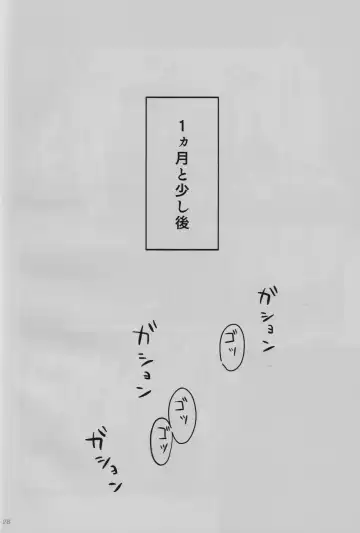 １ヵ月と少し後
ガション
ゴッ
ガション
ゴッ
ゴッ
ガション